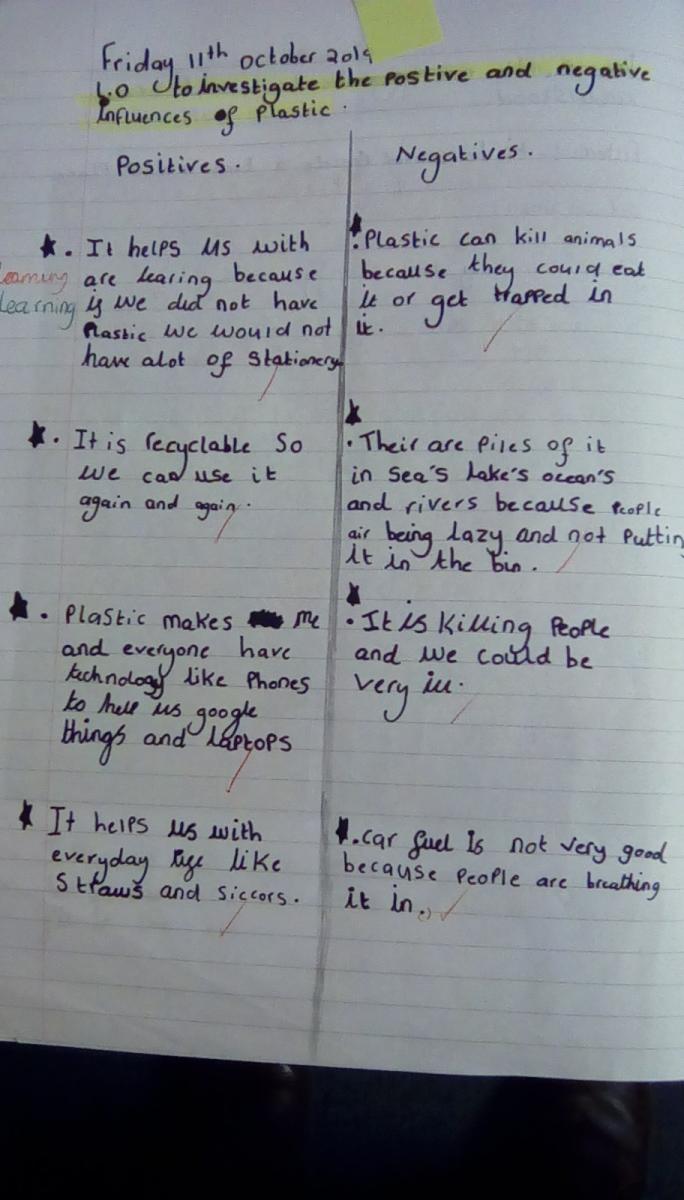 Friday 11th October 2019
L.O to investigate the postive and negative
influences of Plastic.
Positives.
It helps us with
are learing because
if we did not have
Plastic we would not
have alot of Stationery.
learning
learning
It is recyclable So
we can use it
again and again.
Plastic makes me
and everyone have
technology like Phones
to help us google
things and laptops
It helps us with
everyday life like
Straws and siccors.
Negatives.
Plastic can kill animals
because they could eat
it or get trapped in
it.
Their are Piles of it
in Sea's Lake's ocean's
and rivers because People
air being lazy and not Puttin
it in the bin.
It is killing People
and we could be
very ill.
car fuel Is not very good
because people are breathing
it in.